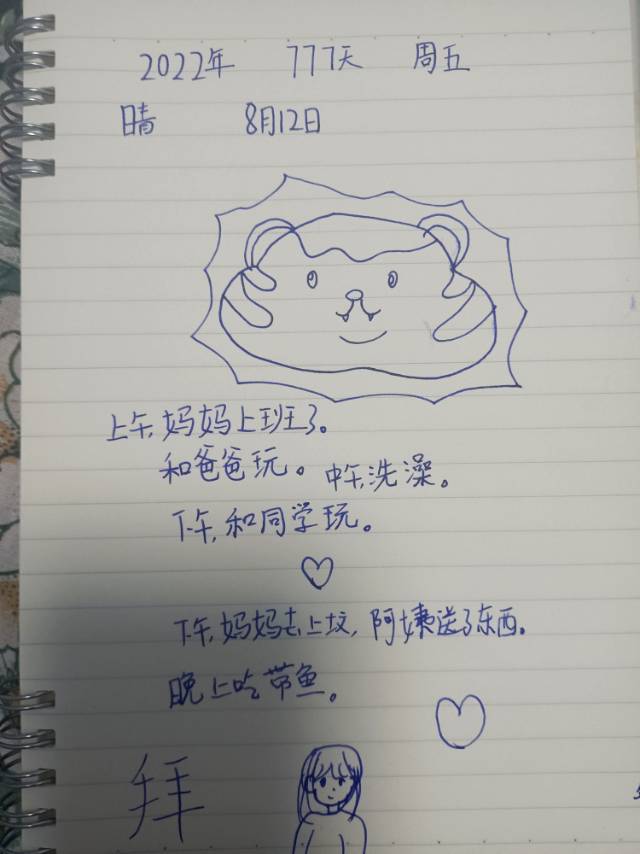 2022年 777天 周五
晴 8月12日
上午,妈妈上班了。
和爸爸玩。中午,洗澡。
下午,和同学玩。
下午,妈妈去上坟,阿姨送了东西。
晚上吃带鱼。
拜